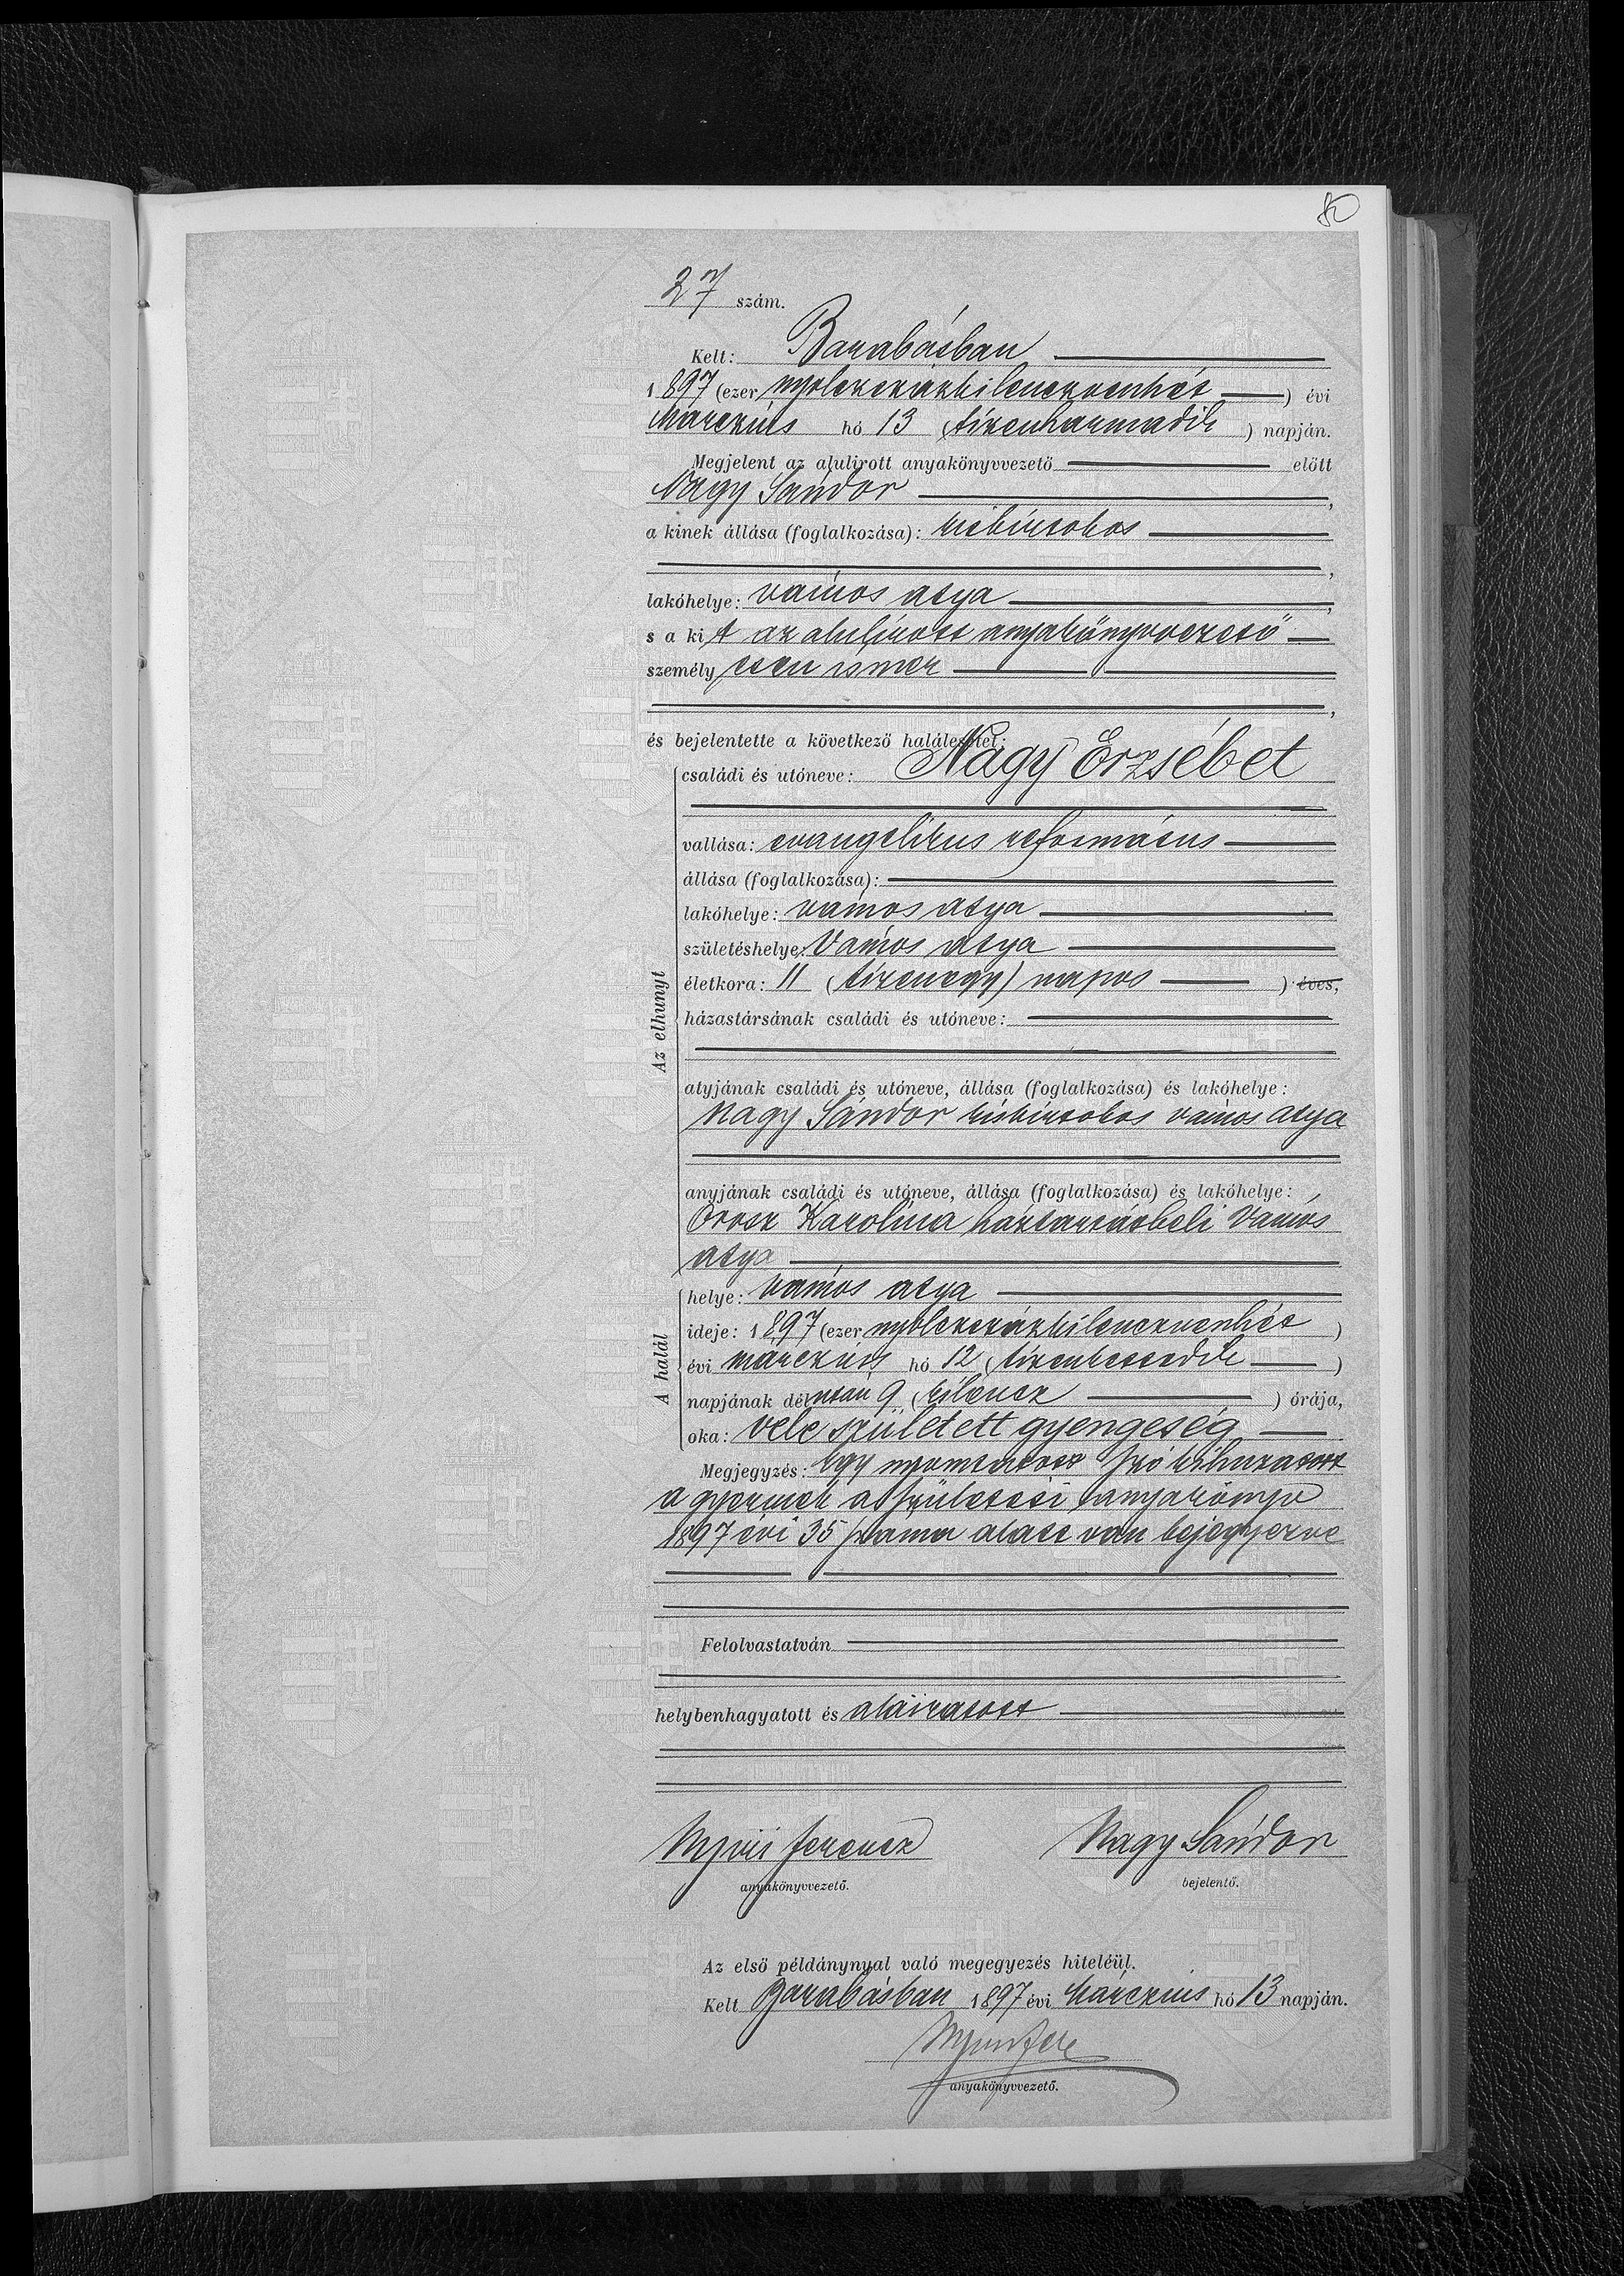 80
27 szám.
Kelt: Barabásban
1897 (ezer nyolczszázkilenczvenhét) évi
Márczius hó 13 (tizenharmadik) napján.
Megjelent az alulirott anyakönyvvezető előtt
Nagy Sándor,
a kinek állása (foglalkozása): kisbirtokos
,
lakóhelye: vámos atya,
s a kit az alulirott anyakönyvvezető
személyesen ismer
,
és bejelentette a következő halálesetet:
Az elhunyt
családi és utóneve: Nagy Erzsébet
vallása: evangelikus református
állása (foglalkozása):
lakóhelye: vámos atya
születéshelye: Vámos atya
életkora: 11 (tizenegy) napos ) éves,
házastársának családi és utóneve:
atyjának családi és utóneve, állása (foglalkozása) és lakóhelye:
Nagy Sándor kisbirtokos vámos atya
anyjának családi és utóneve, állása (foglalkozása) és lakóhelye:
Orosz Karolina háztartásbeli Vámos
atya
A halál
helye: vámos atya
ideje: 1897 (ezer nyolczszázkilenczvenhét)
évi márczius hó 12 (tizenkettedik)
napjának délután 9 (kilencz) órája,
oka: vele született gyengeség
Megjegyzés: Egy nyomtatott szó kihuzatott
a gyermek a születési anyakönyv
1897 évi 35 száma alatt van bejegyezve
Felolvastatván
helybenhagyatott és aláiratott
Nyiri Ferencz Nagy Sándor
anyakönyvvezető. bejelentő.
Az első példánynyal való megegyezés hiteléül.
Kelt Barabásban 1897 évi Márczius hó 13 napján.
anyakönyvvezető.